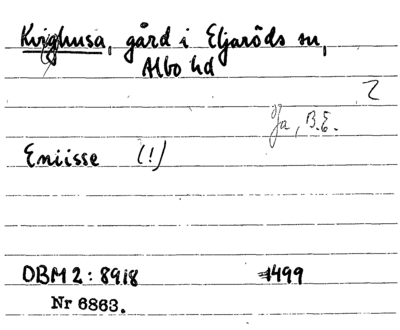 Kvighusa, gård i Eljaröds sn,
Albo hd
2
Ja, B.E.
Eniisse (!)
DBM 2: 8918 1499
Nr 6863.